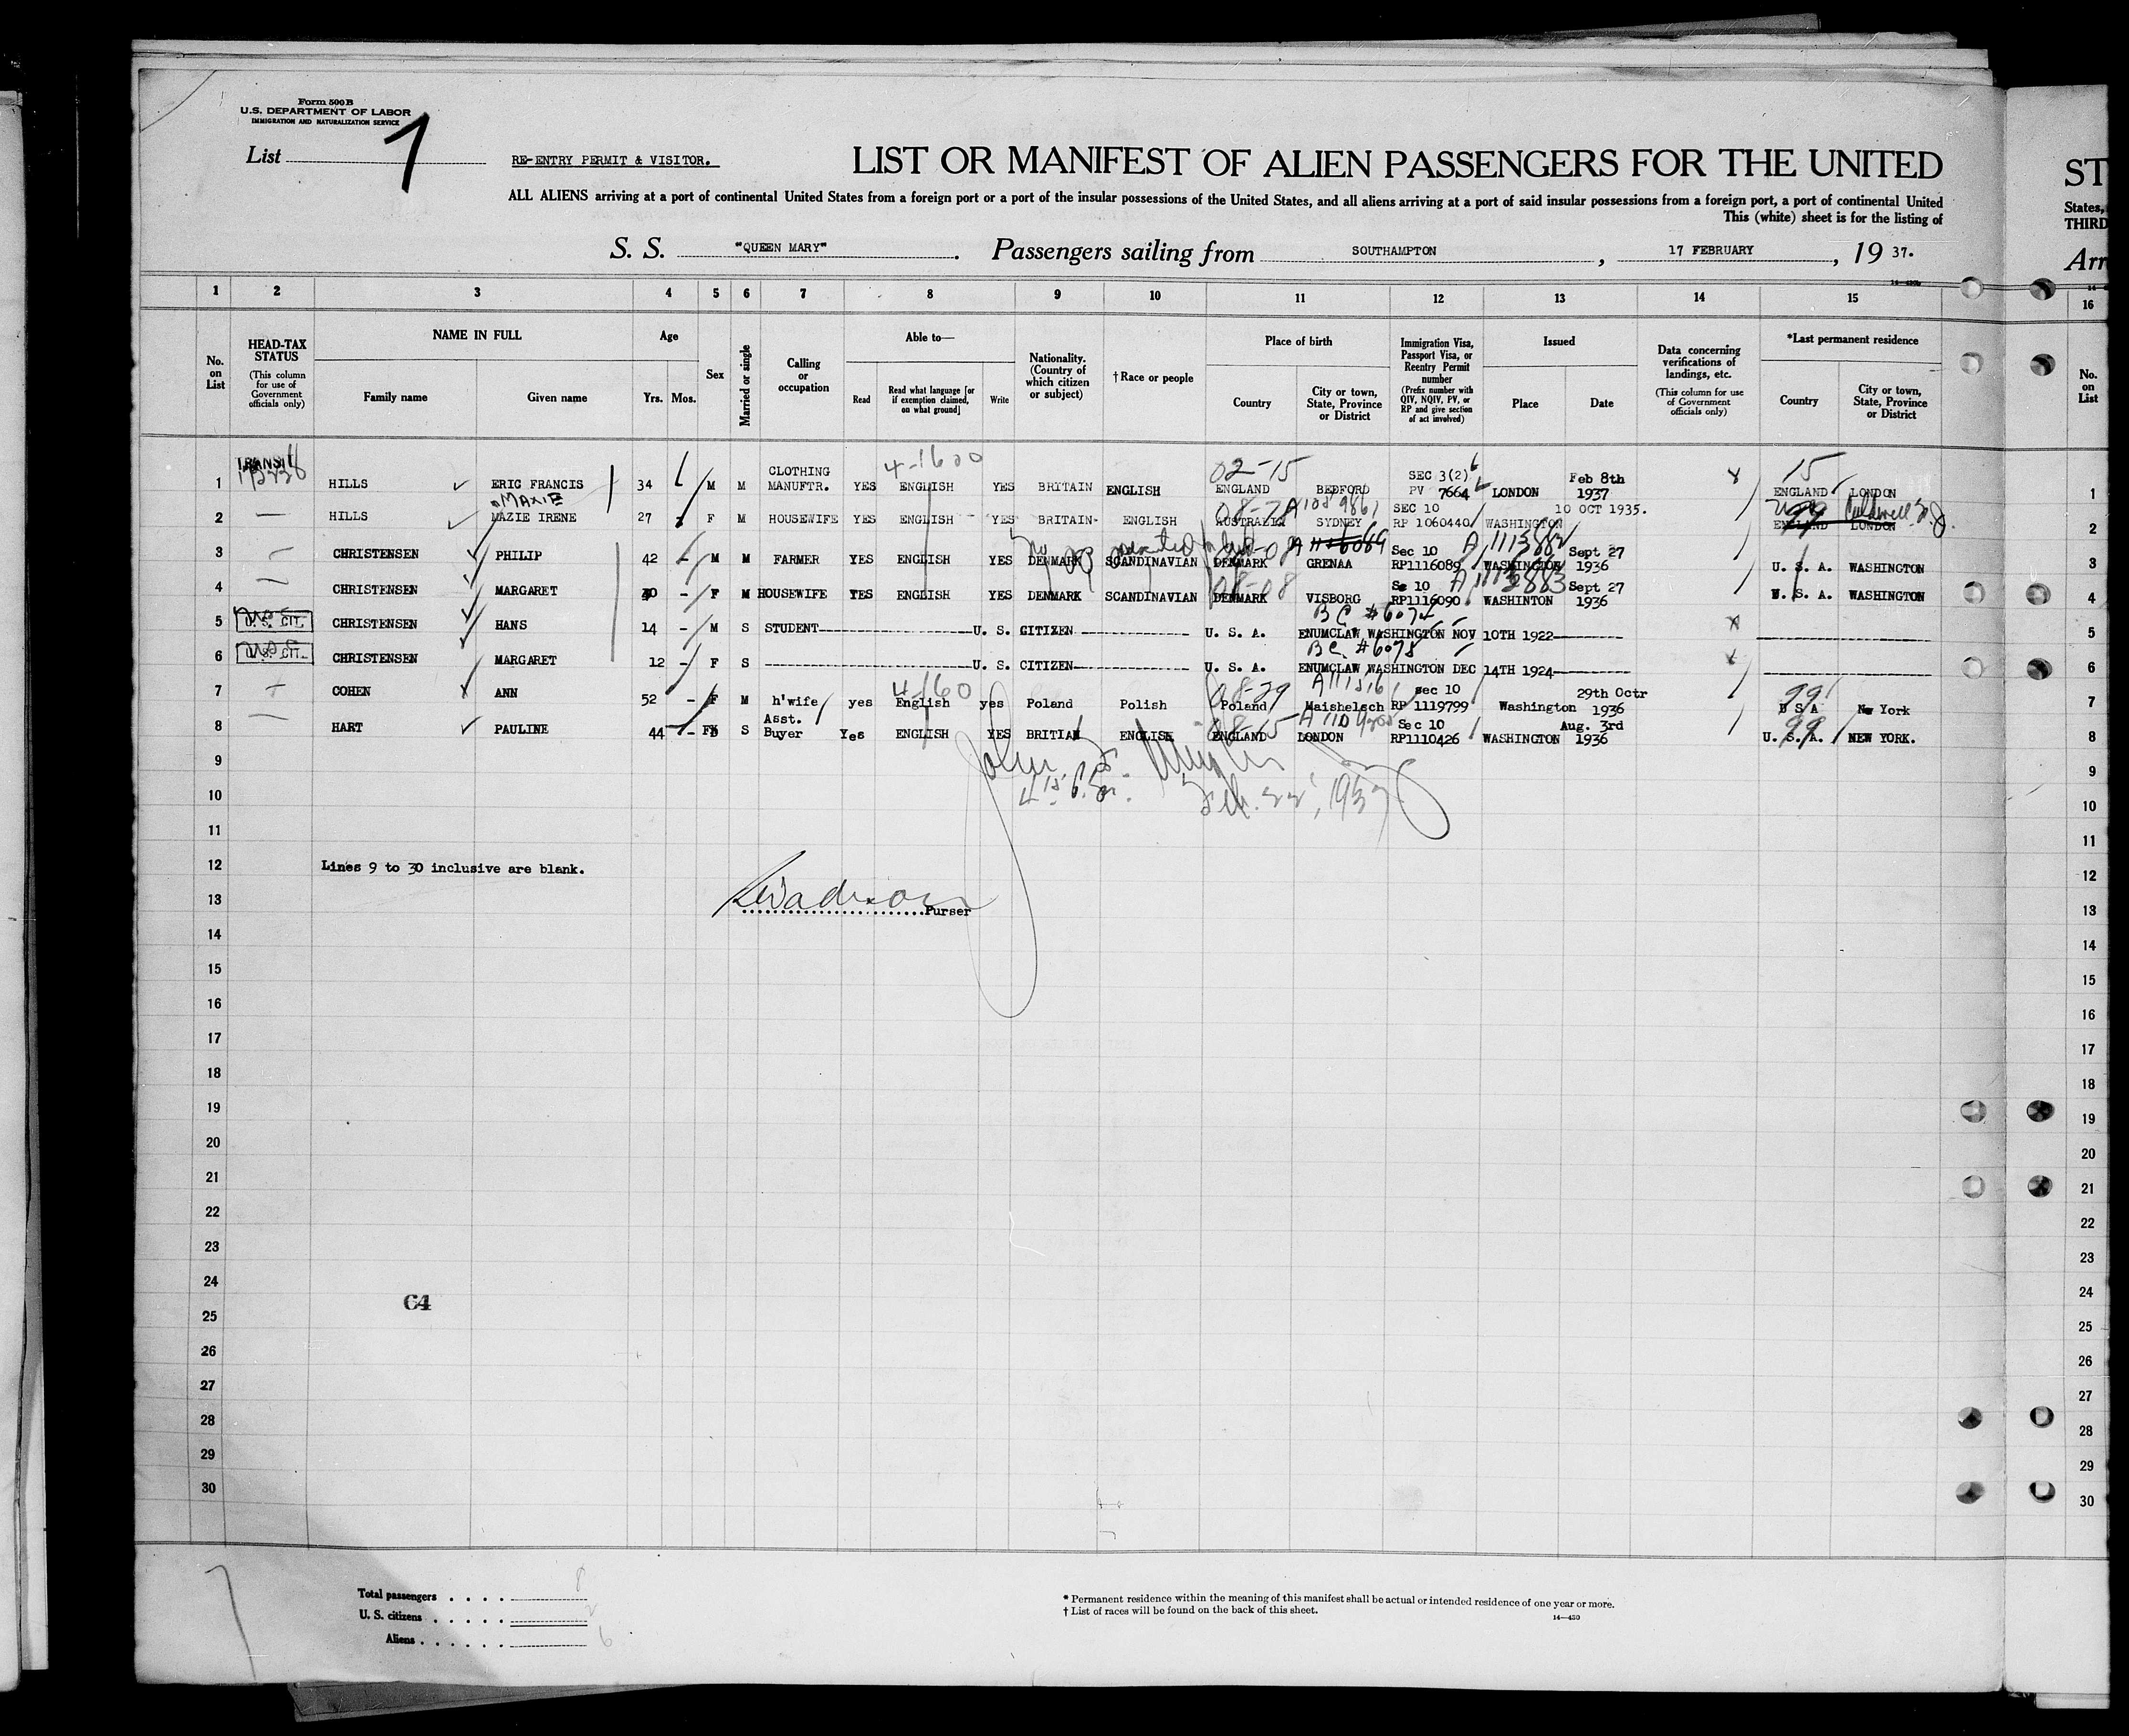 Form 500 B
U.S. DEPARTMENT OF LABOR
IMMIGRATION AND NATURALIZATION SERVICE
List 7
RE-ENTRY PERMIT & VISITOR.
LIST OR MANIFEST OF ALIEN PASSENGERS FOR THE UNITED
ST
ALL ALIENS arriving at a port of continental United States from a foreign port or a part of the insular possessions of the United States, and all aliens arriving at a port of said insular possessions from a foreign port, a port of continental United
States,
This (white) sheet is for the listing of
THIRD
S. S. "QUEEN MARY". Passengers sailing from SOUTHAMPTON, 17 FEBRUARY, 19 37.
Arr
1 2 3 4 5 6 7 8 9 10 11 12 13 14 15 16
No. on List
HEAD-TAX STATUS (This column for use of Government officials only)
NAME IN FULL
Family name
Given name
Age
Yrs. Mos.
Sex
Married or single
Calling or occupation
Able to—
Read
Read what language [or if exemption claimed, on what ground]
Write
Nationality. (Country of which citizen or subject)
†Race or people
Place of birth
Country
City or town, State, Province or District
Immigration Visa, Passport Visa, or Reentry Permit number (Prefix number with QIV, NQIV, PV, or RP and give section of act involved)
Issued
Place
Date
Data concerning verifications of landings, etc. (This column for use of Government officials only)
*Last permanent residence
Country
City or town, State, Province or District
No. on List
TRANSIT 4-1600 02-15 15
1 HILLS ERIC FRANCIS 34 M M CLOTHING MANUFTR. YES ENGLISH YES BRITAIN ENGLISH ENGLAND BEDFORD SEC 3(2) PV 7664 LONDON Feb 8th 1937 ENGLAND LONDON 1
MAXIE
2 HILLS MAZIE IRENE 27 F M HOUSEWIFE YES ENGLISH YES BRITAIN ENGLISH AUSTRALIA SYDNEY SEC 10 RP 1060440 WASHINGTON 10 OCT 1935. 99 Caldwell N.J. ENGLAND LONDON 2
3 CHRISTENSEN PHILIP 42 - M M FARMER YES ENGLISH YES DENMARK SCANDINAVIAN DENMARK GRENAA Sec 10 RP1116089 WASHINGTON Sept 27 1936 U. S. A. WASHINGTON 3
4 CHRISTENSEN MARGARET 40 - F M HOUSEWIFE YES ENGLISH YES DENMARK SCANDINAVIAN DENMARK VISBORG Se 10 RP1116090 WASHINTON Sept 27 1936 U. S. A. WASHINGTON 4
BC #6074
5 U. S. CIT. CHRISTENSEN HANS 14 - M S STUDENT U. S. CITIZEN U. S. A. ENUMCLAW WASHINGTON NOV 10TH 1922 5
BC. #6078
6 U. S. CIT. CHRISTENSEN MARGARET 12 - F S U. S. CITIZEN U. S. A. ENUMCLAW WASHINGTON DEC 14TH 1924 6
4-160 08-29
7 COHEN ANN 52 - F M h'wife yes English yes Poland Polish Poland Maishelsch sec 10 RP 1119799 Washington 29th Octr 1936 99 U S A New York 7
8 HART PAULINE 44 - F S Asst. Buyer Yes ENGLISH YES BRITIAN ENGLISH ENGLAND LONDON Sec 10 RP1110426 WASHINGTON Aug. 3rd 1936 99 U. S. A. NEW YORK. 8
9 9
Feb. 22, 1937
10 10
11 11
12 Lines 9 to 30 inclusive are blank. 12
13 Purser 13
14 14
15 15
16 16
17 17
18 18
19 19
20 20
21 21
22 22
23 23
24 24
C4
25 25
26 26
27 27
28 28
29 29
30 30
Total passengers 8
U. S. citizens 2
Aliens 6
* Permanent residence within the meaning of this manifest shall be actual or intended residence of one year or more.
† List of races will be found on the back of this sheet.
14—430